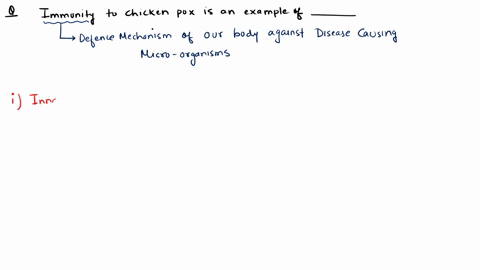 Q Immunity to chicken pox is an example of ________
Defence Mechanism of our body against Disease Causing
Micro-organisms
i) Inn